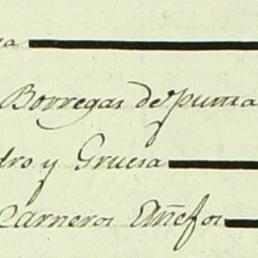 a
Borregas de puma
dro y Gruesa
Carneros Añejos